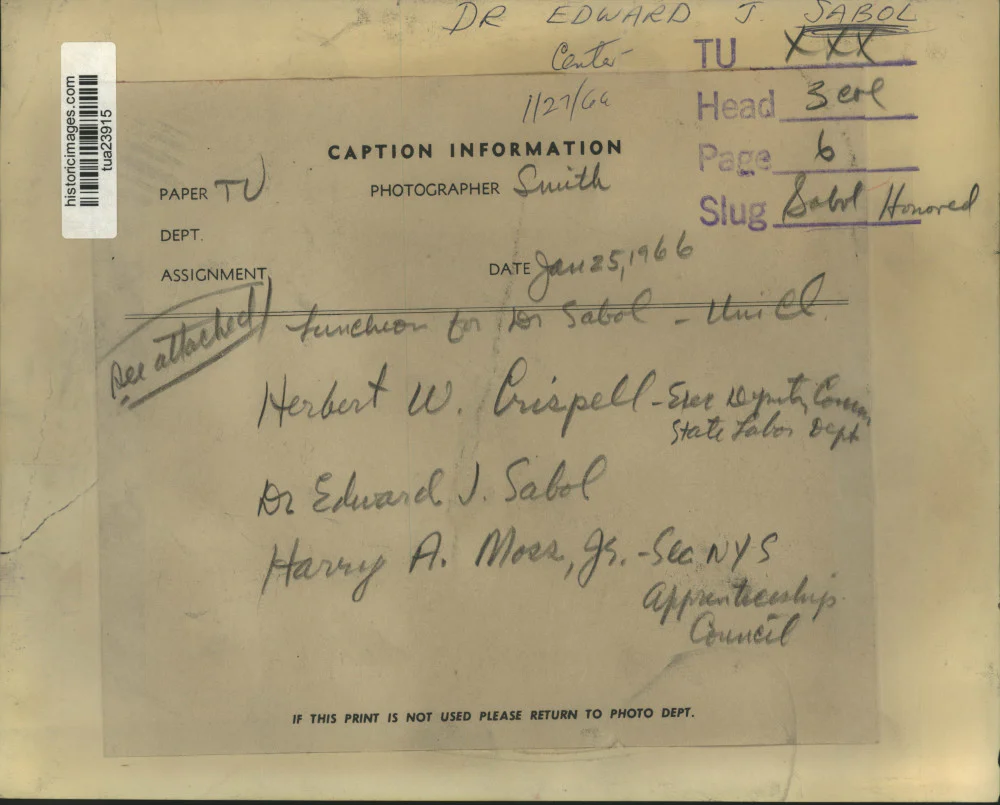 DR EDWARD J. SABOL
Center
1/27/66
TU XXX
Head 3 col
Page 6
Slug Sabol Honored
historicimages.com
tua23915
CAPTION INFORMATION
PAPER TU PHOTOGRAPHER Smith
DEPT.
ASSIGNMENT DATE Jan 25, 1966
See attached
Luncheon for Dr Sabol - Uni Cl.
Herbert W. Crispell - Exec Deputy Comm
State Labor Dept
Dr Edward J. Sabol
Harry A. Moss, Jr. - Sec NYS
Apprenticeship
Council
IF THIS PRINT IS NOT USED PLEASE RETURN TO PHOTO DEPT.